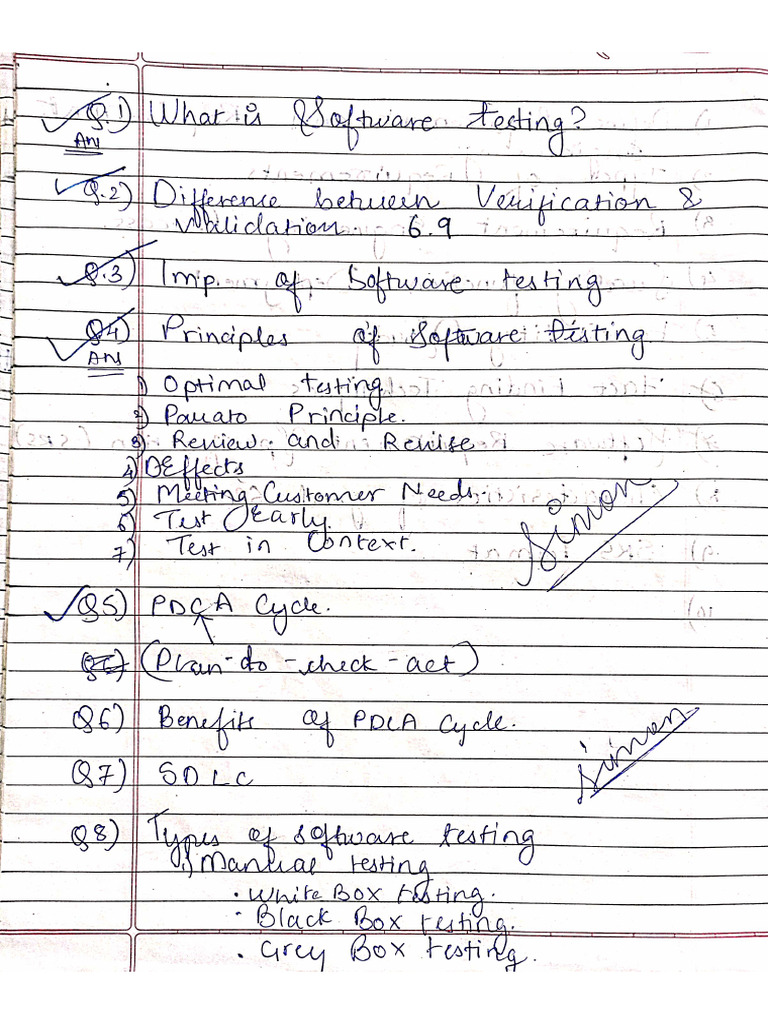 Q.1) What is Software testing?
Ans
Q.2) Difference between Verification &
Validation 6.9
Q.3) Imp. of Software testing
Q4) Principles of Software Testing
Ans
1) Optimal testing
2) Pauato Principle.
3) Review and Revise
4) DEffects
5) Meeting Customer Needs.
6) Test Early.
7) Test in Context.
Simon
Q5) PDCA Cycle.
(Plan-do-check-act)
Q6) Benefits of PDCA Cycle.
Simon
Q7) SDLC
Q8) Types of software testing
1) Manual testing
• White Box testing.
• Black Box testing.
• Grey Box testing.